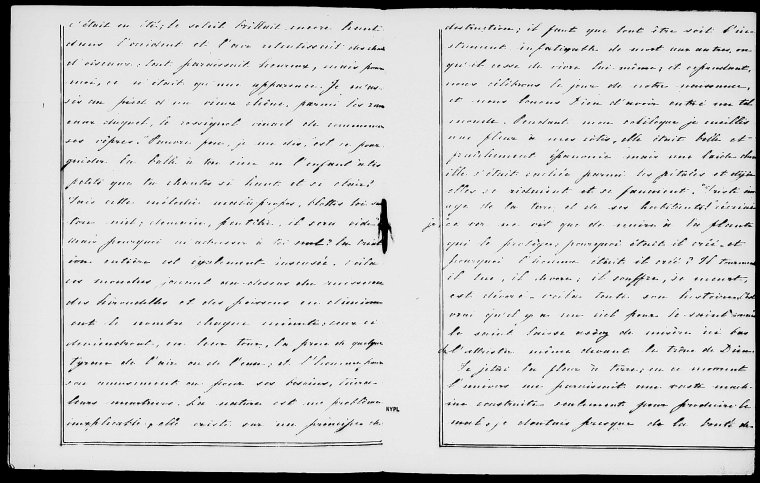 c'était en été; le soleil brillait encore haut
dans l'occident et l'air retentissait des chants
d'oiseaux: tout paraissait heureux, mais pour
moi, ce n'était qu'une apparence. Je m'as-
sis au pied d'un vieux chêne, parmi les ra-
meaux duquel, le rossignol venait de commencer
ses vêpres. "Pauvre peu, je me dis, est ce pour
guider la balle à ton sein ou l'enfant à tes
petits que tu chantes si haut et si clair?
Tais cette mélodie mal à propos, blottis toi sur
ton nid; demain, peutêtre, il sera vide.
Mais pourquoi m'adresser à toi seul? la créat-
ion entière est également insensée. Voila
ces mouches jouant au-dessus du ruisseau
des hirondelles et des poissons en diminu-
ent le nombre chaque minute; ceux-ci
deviendront, en leur tour, la proie de quelque
tyran de l'air ou de l'eau; et l'homme, pour
son amusement ou pour ses besoins, tuera
leurs meurtriers. La nature est un problème
inexplicable, elle existe sur un principe de
NYPL
destruction; il faut que tout être soit l'in-
strument infatigable de mort aux autres, ou
qu'il cesse de vivre lui même; et cependant,
nous célébrons le jour de notre naissance,
et nous louons Dieu d'avoir entré un tel
monde. Pendant mon soliloque je cueillis
une fleur à mes côtés, elle était belle et
fraîchement épanouie mais une laide che-
nille s'était cachée parmi les pétales et déjà
elles se ridaient et se fanaient. "Triste im-
age de la terre et de ses habitants! m'écriai
je, ce ver ne vit que de nuire à la plante
qui le protège; pourquoi était il créé et
pourquoi l'homme était il créé? Il tourmente
il tue, il dévore; il souffre, se meurt,
est dévoré - voilà toute son histoire. C'est
vrai qu'il y a un ciel pour le saint mais
le saint laisse assez de misère ici bas
de l'attrister même devant le trône de Dieu.
Je jetai la fleur à terre; en ce moment
l'univers me paraissait une vaste mach-
ine construite seulement pour produire le
mal; je doutais presque de la bonté de